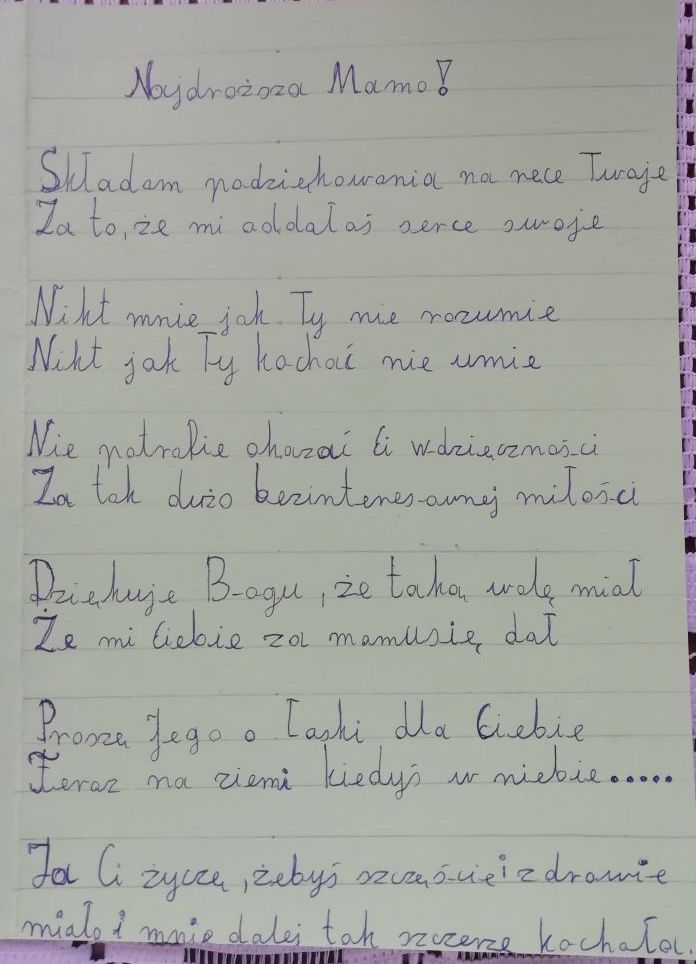 Najdroższa Mamo!
Składam podziękowania na ręce Twoje
Za to, że mi oddałaś serce swoje
Nikt mnie jak Ty nie rozumie
Nikt jak Ty kochać nie umie
Nie potrafie okazać Ci wdzięczności
Za tak dużo bezinteresownej miłości
Dziękuje Bogu, że taką wolę miał
Że mi Ciebie za mamusię dał
Proszę Jego o łaski dla Ciebie
Teraz na ziemi kiedyś w niebie.....
Ja Ci życzę, żebyś szczęście i zdrowie
miała i mnie dalej tak szczerze kochała.